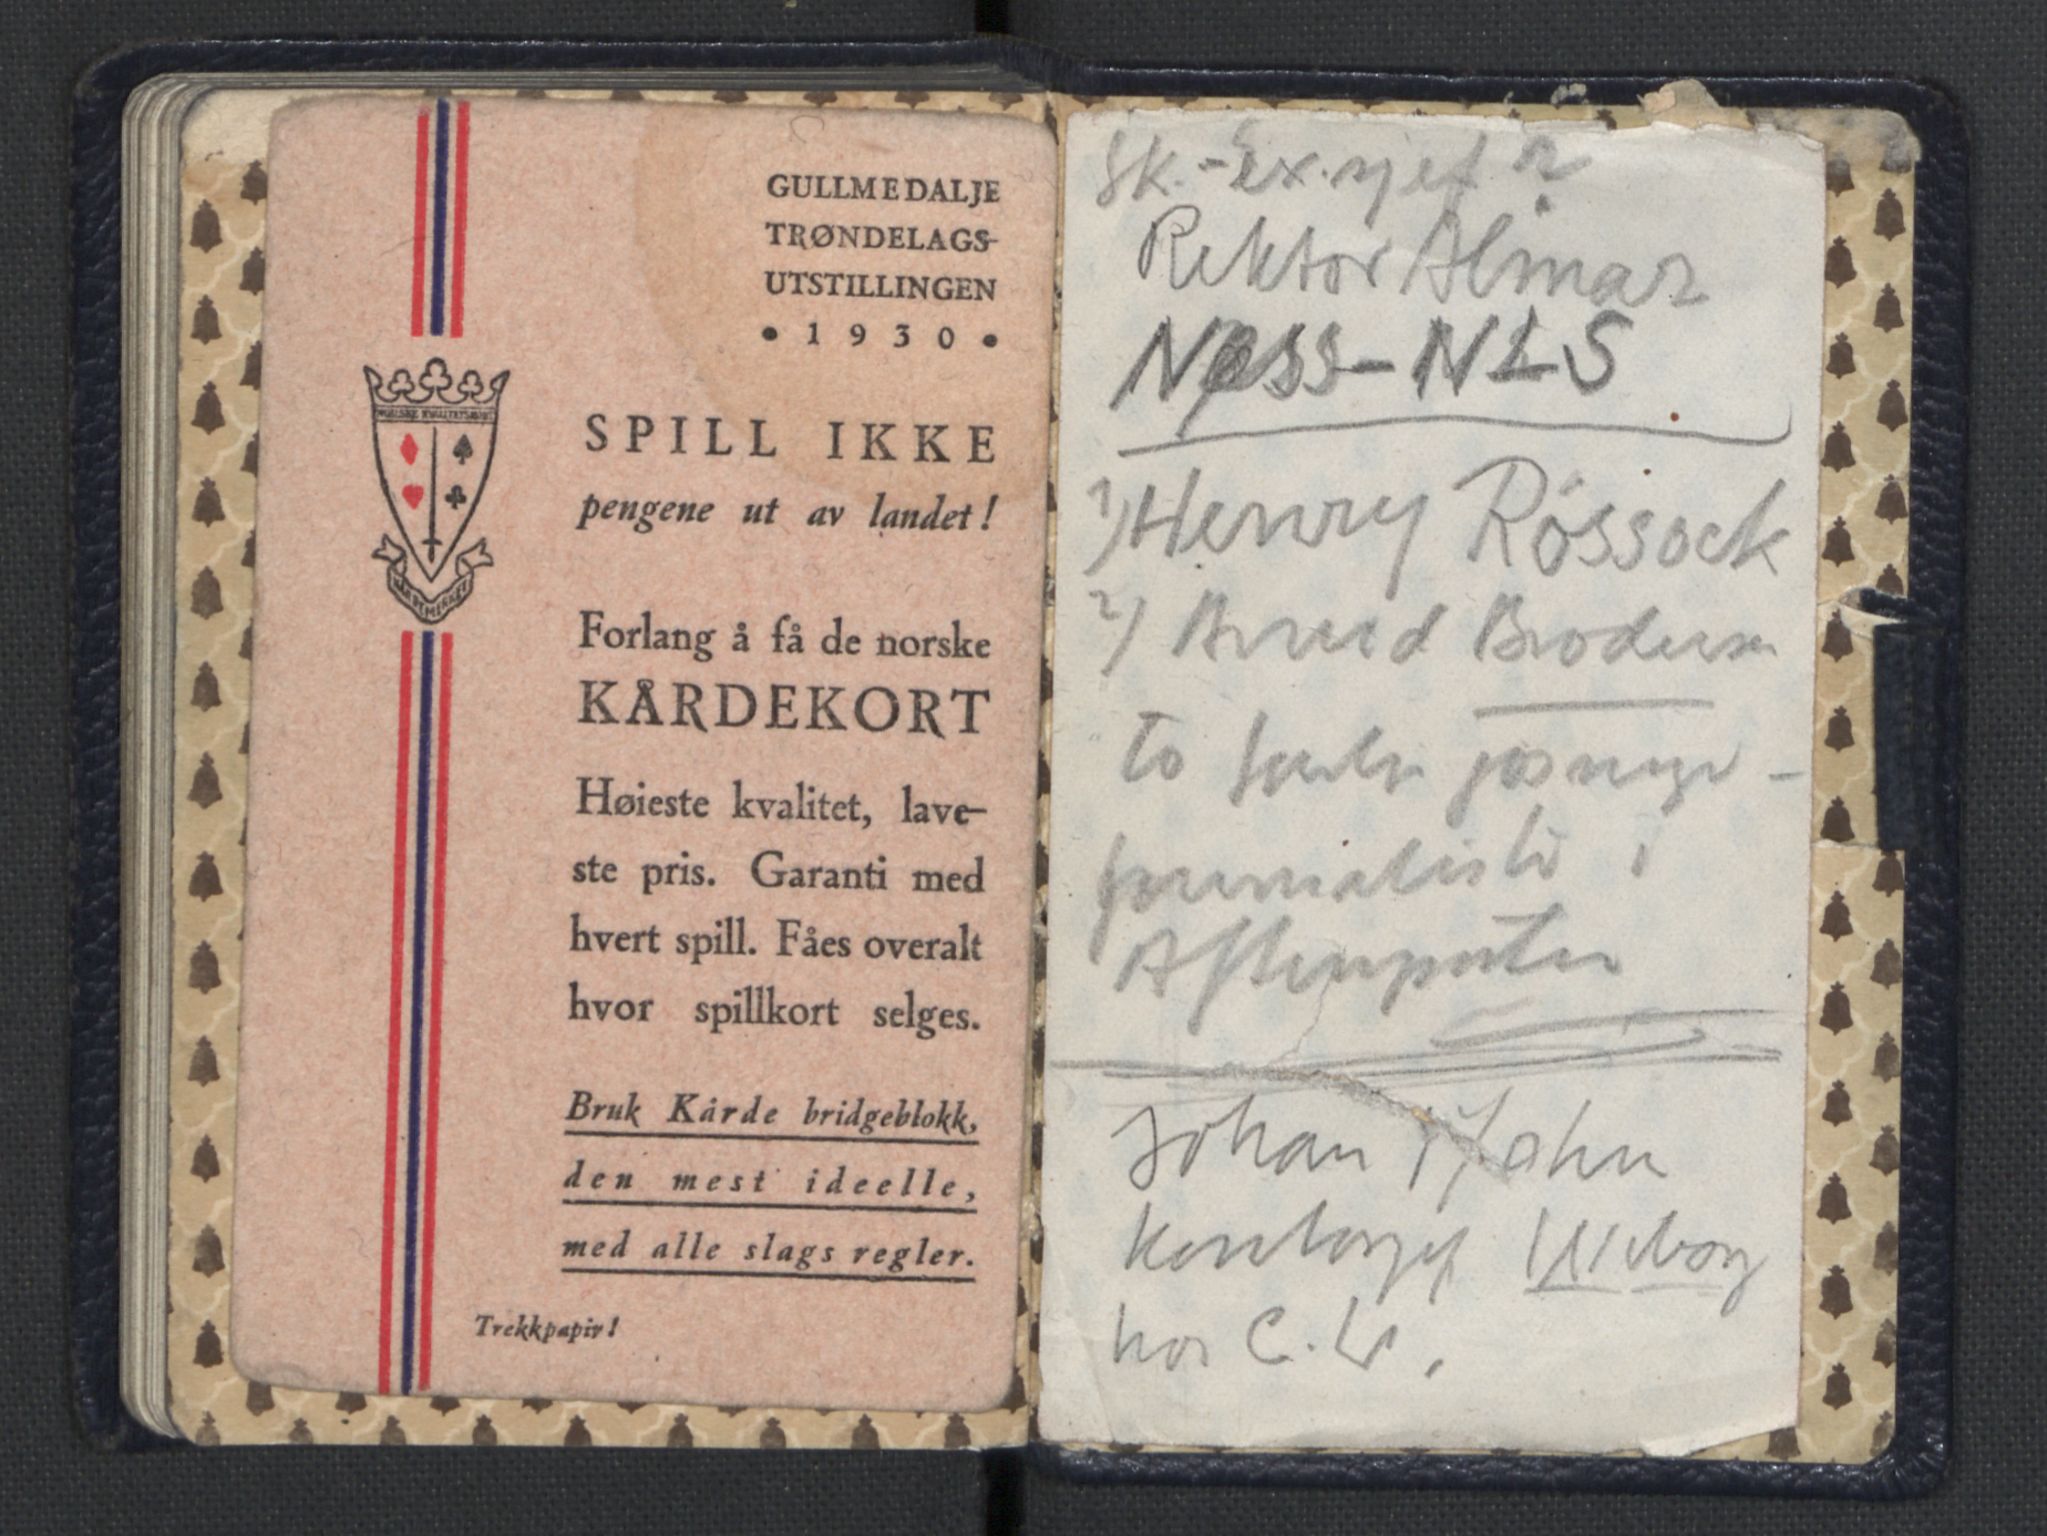 GULLMEDALJE
TRØNDELAGS-
UTSTILLINGEN
• 1930 •
NORSKE KVALITETSKORT
KÅRDEMERKET
SPILL IKKE
pengene ut av landet!
Forlang å få de norske
KÅRDEKORT
Høieste kvalitet, lave-
ste pris. Garanti med
hvert spill. Fåes overalt
hvor spillkort selges.
Bruk Kårde bridgeblokk,
den mest ideelle,
med alle slags regler.
Trekkpapir!
Sk.-
Rektor Almar
Næss-NLS
1) Henry Røssock
2) Arvid Brodersen
to
journalister i
Aftenposten
Johan / John
Wiborg
hos C.W.